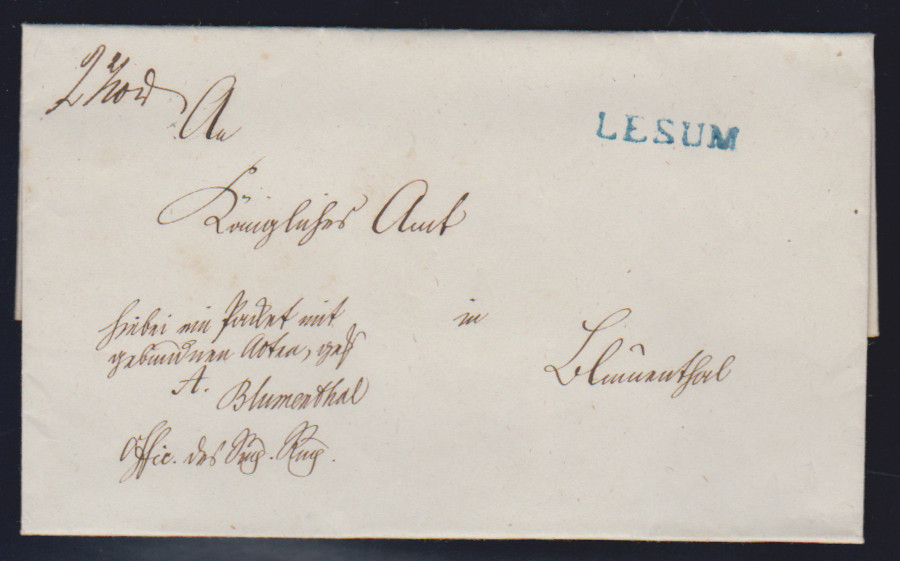 An
LESUM
Königliches Amt
in
Blumenthal
hiebei ein Packet mit
gebundnen Acten, gez
A.
Blumenthal
Offic. des